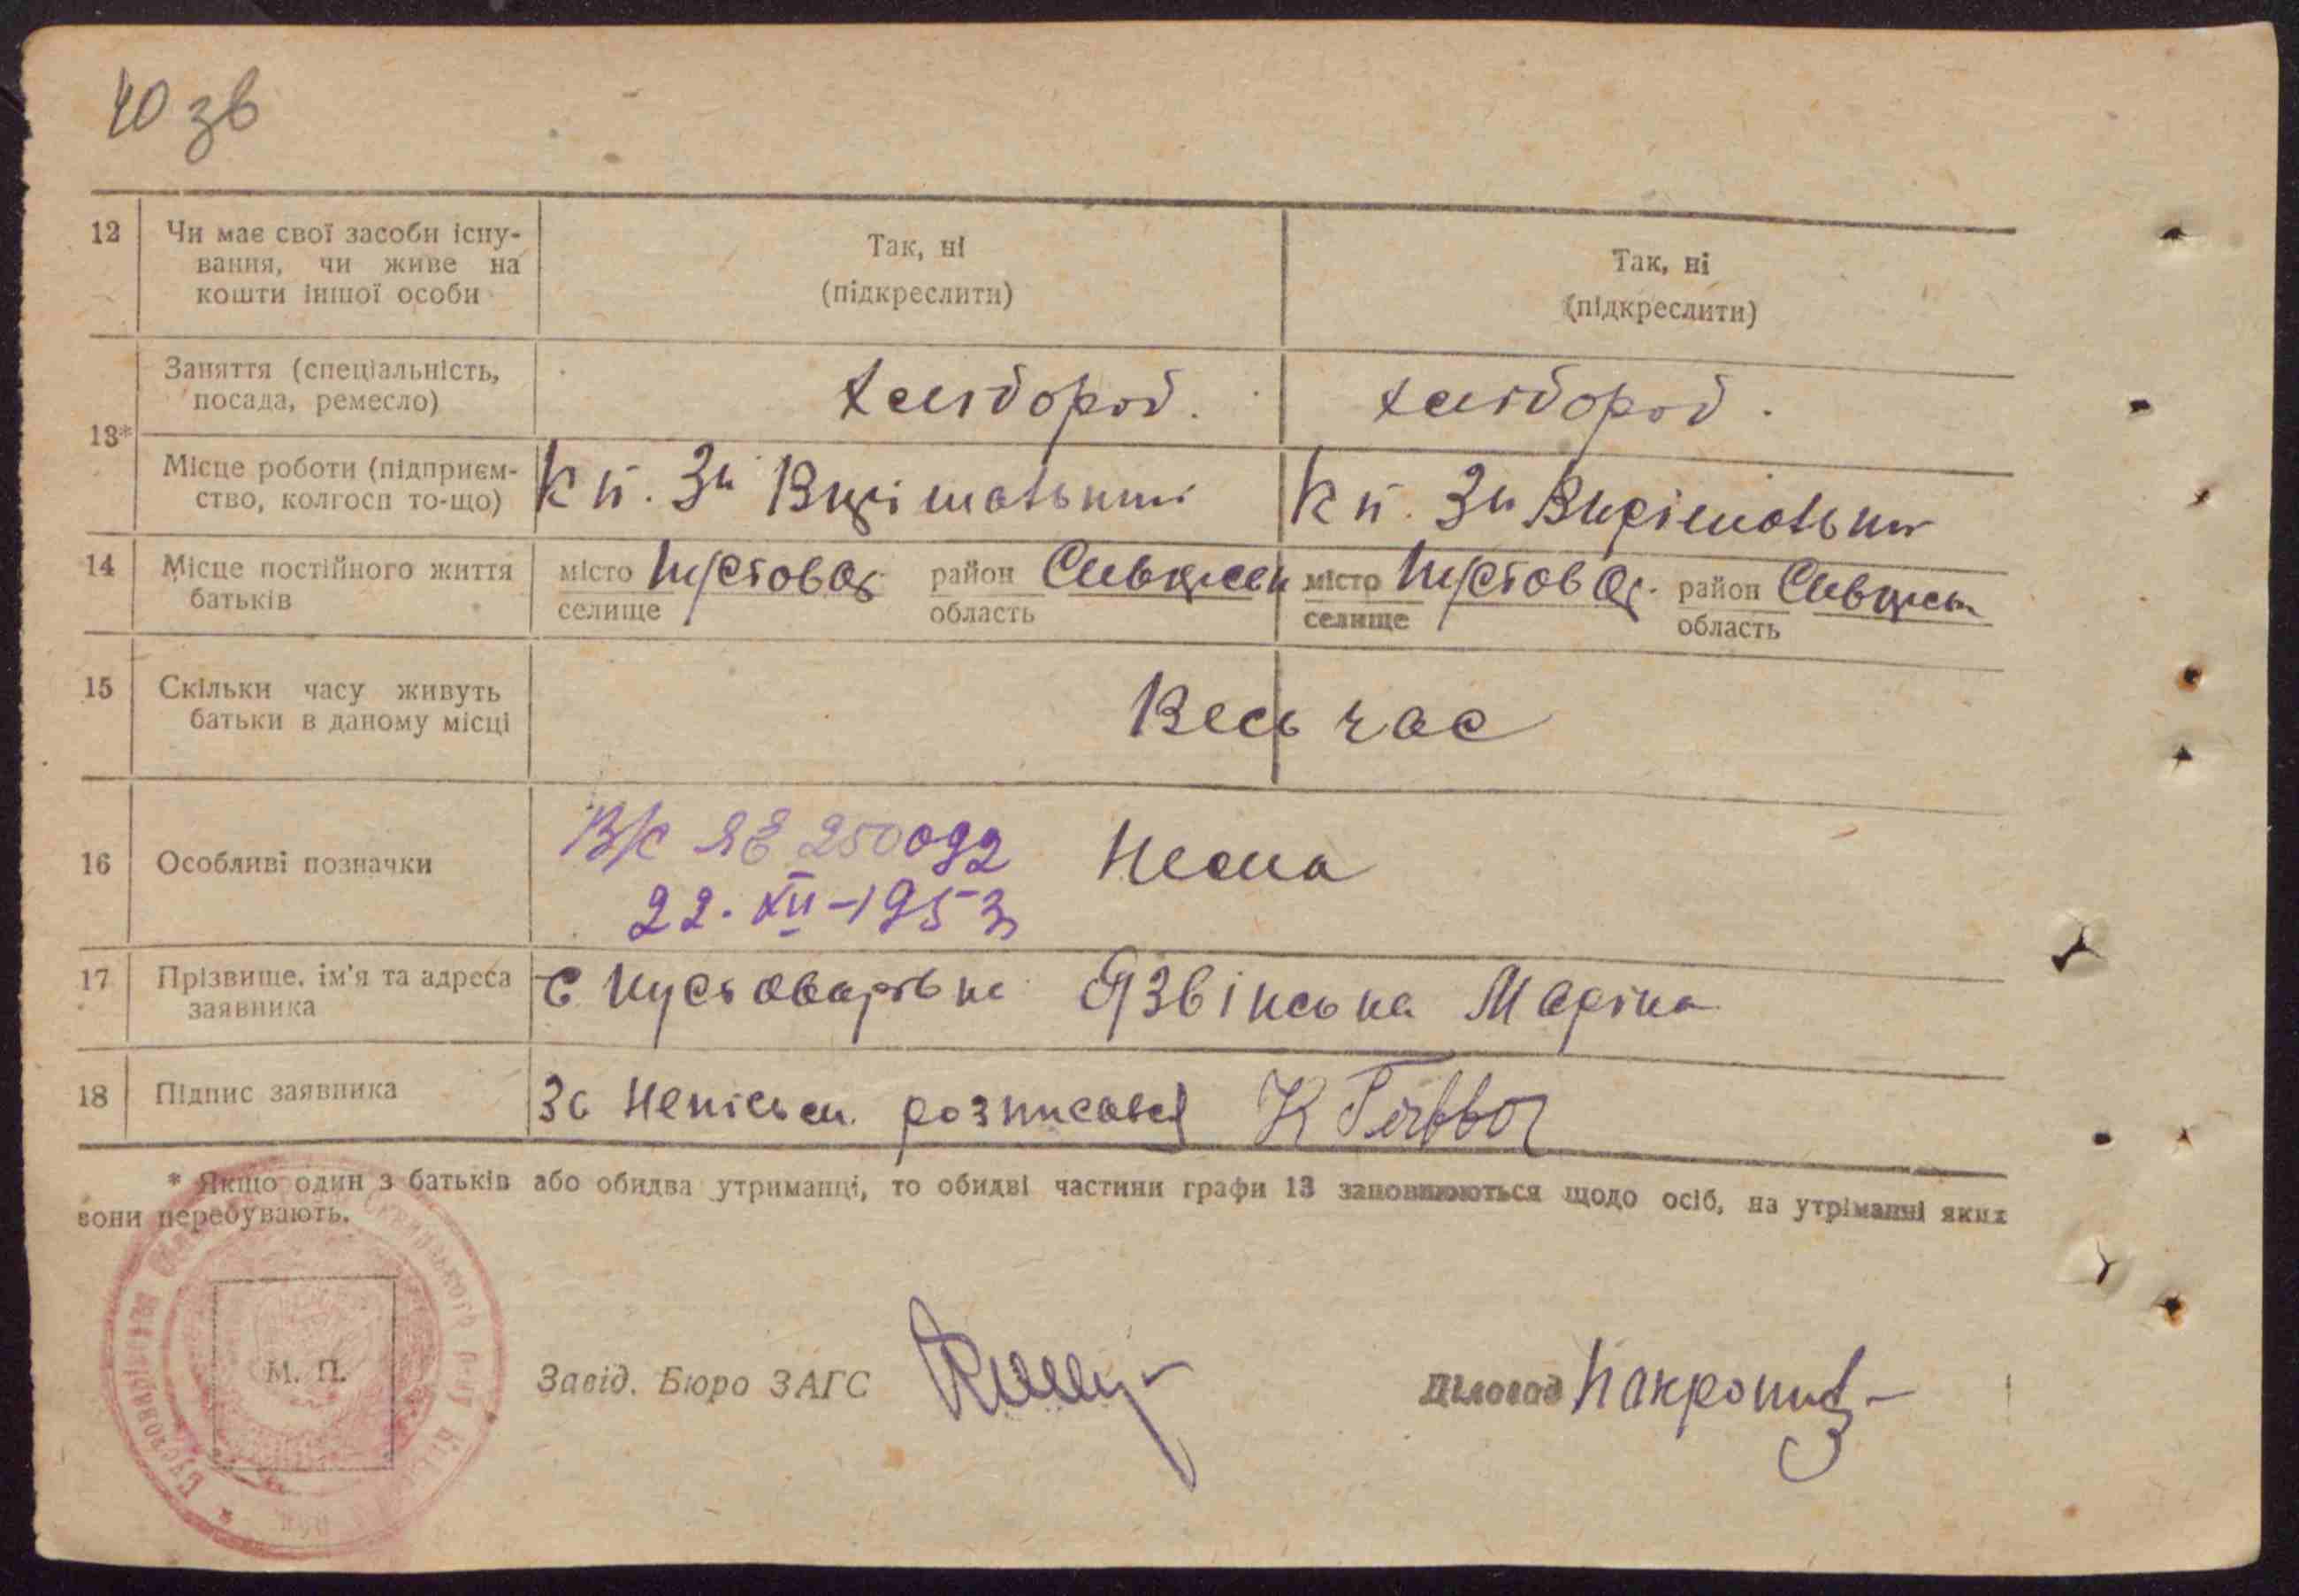 40 зв
12 Чи має свої засоби існу-
вання, чи живе на
кошти іншої особи
Так, ні
(підкреслити)
Так, ні
(підкреслити)
13*
Заняття (спеціальність,
посада, ремесло)
хлібороб.
хлібороб.
Місце роботи (підприєм-
ство, колгосп то-що)
14 Місце постійного життя
батьків
місто Пустовар район
селище область
місто Пустовар. район
селище область
15 Скільки часу живуть
батьки в даному місці
Весь час
16 Особливі позначки
В/С ЯЕ 250092 Нема
22. XII-1953
17 Прізвище, ім'я та адреса
заявника
с Пустоварівка Язвінська Маріна
18 Підпис заявника
За неписьм. розписався
* Якщо один з батьків або обидва утриманці, то обидві частини графи 13 заповнюються щодо осіб, на утріманні яких
вони перебувають.
М. П.
Завід. Бюро ЗАГС
Діловод